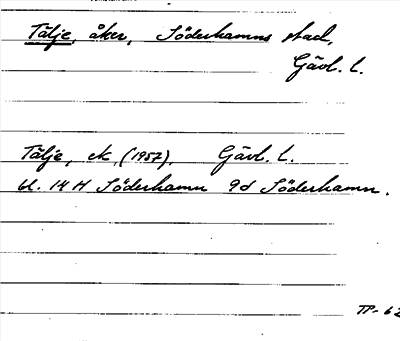 Tälje, åker, Söderhamns stad,
Gävl. l.
Tälje, ek, (1957), Gävl. l.
bl. 14 H Söderhamn 9d Söderhamn.
TP-62